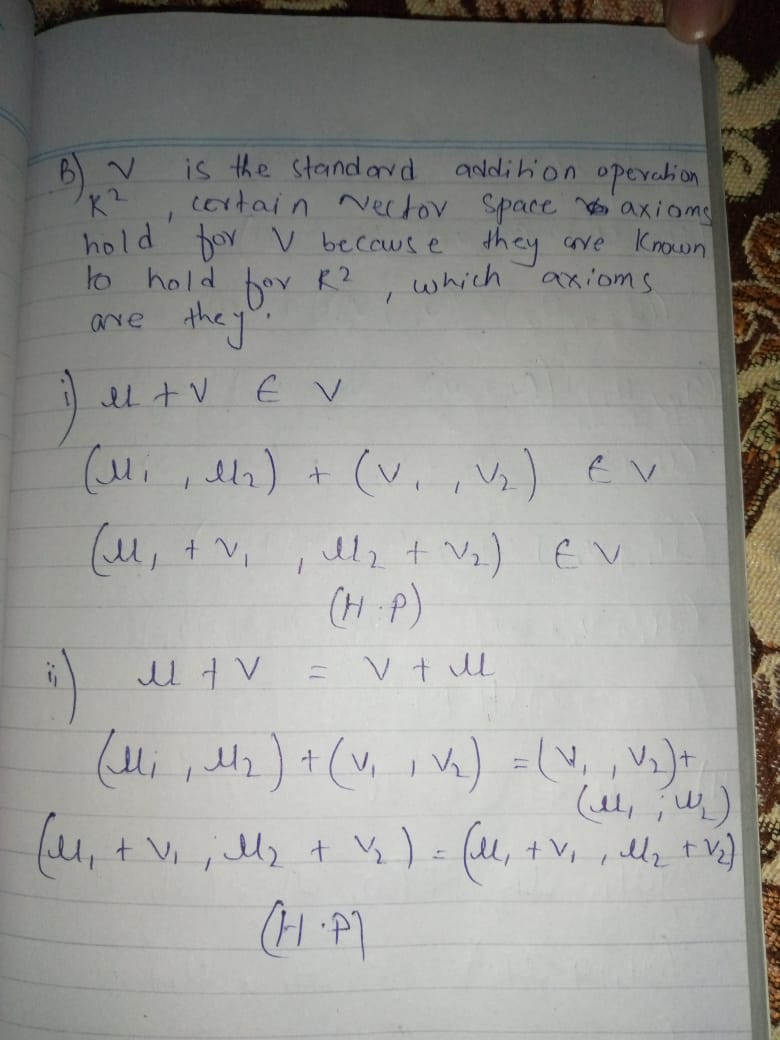 B) V is the standard addition operation
R², certain Vector Space axioms
hold for V because they are known
to hold for R², which axioms
are they.
i) u + v ∈ V
(u₁, u₂) + (v₁, v₂) ∈ V
(u₁ + v₁, u₂ + v₂) ∈ V
(H.P)
ii) u + v = v + u
(u₁, u₂) + (v₁, v₂) = (v₁, v₂) +
(u₁, u₂)
(u₁ + v₁, u₂ + v₂) = (u₁ + v₁, u₂ + v₂)
(H.P)